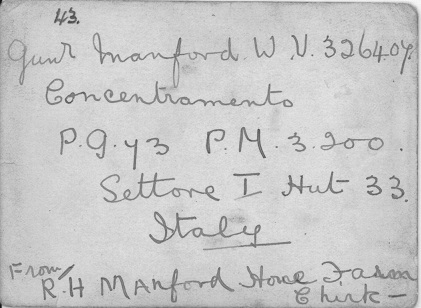 43.
Gunr Manford W.V. 326407.
Concentramento
P.G. 73 P.M. 3.200.
Settore I Hut 33.
Italy
From/
R.H Manford Home Farm
Chirk -